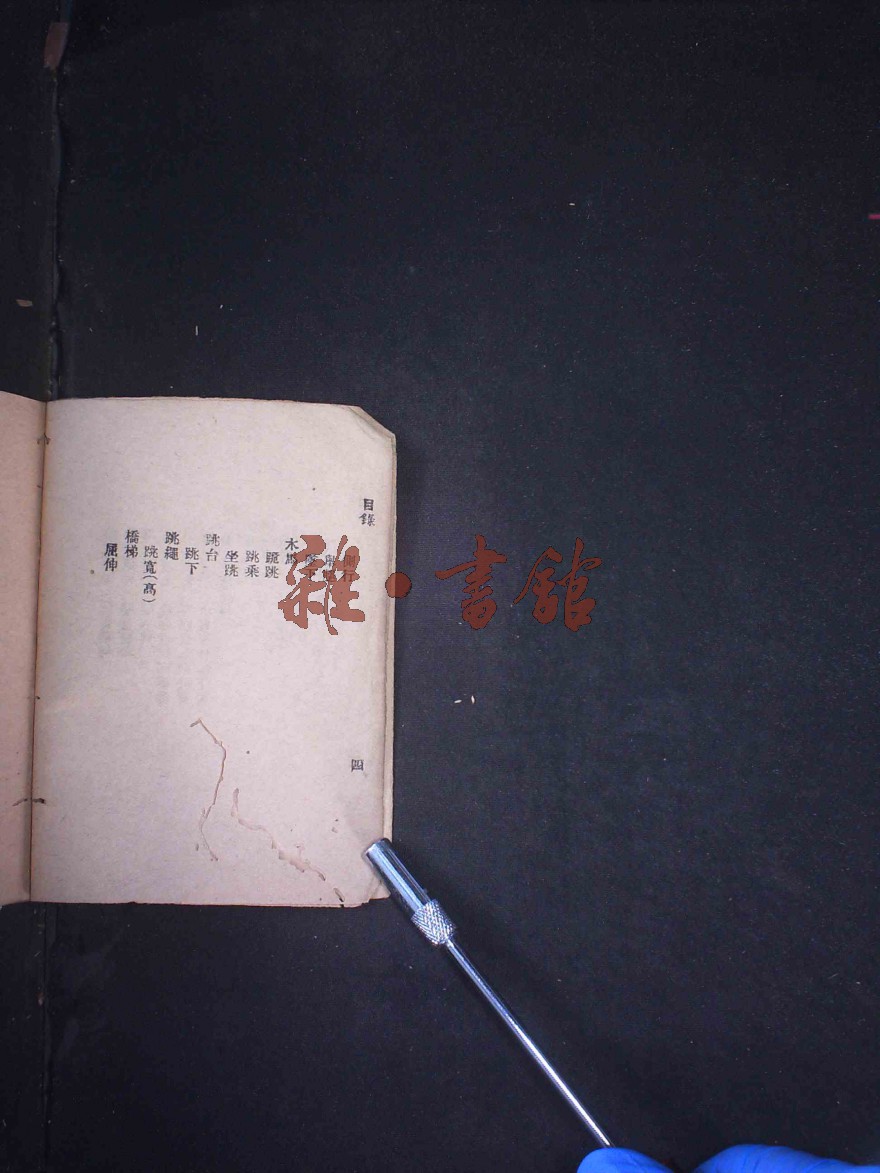 目錄
木馬
蹤跳
跳乘
坐跳
跳台
跳下
跳繩
跳寬(高)
橋梯
屈伸
四
雜·書館